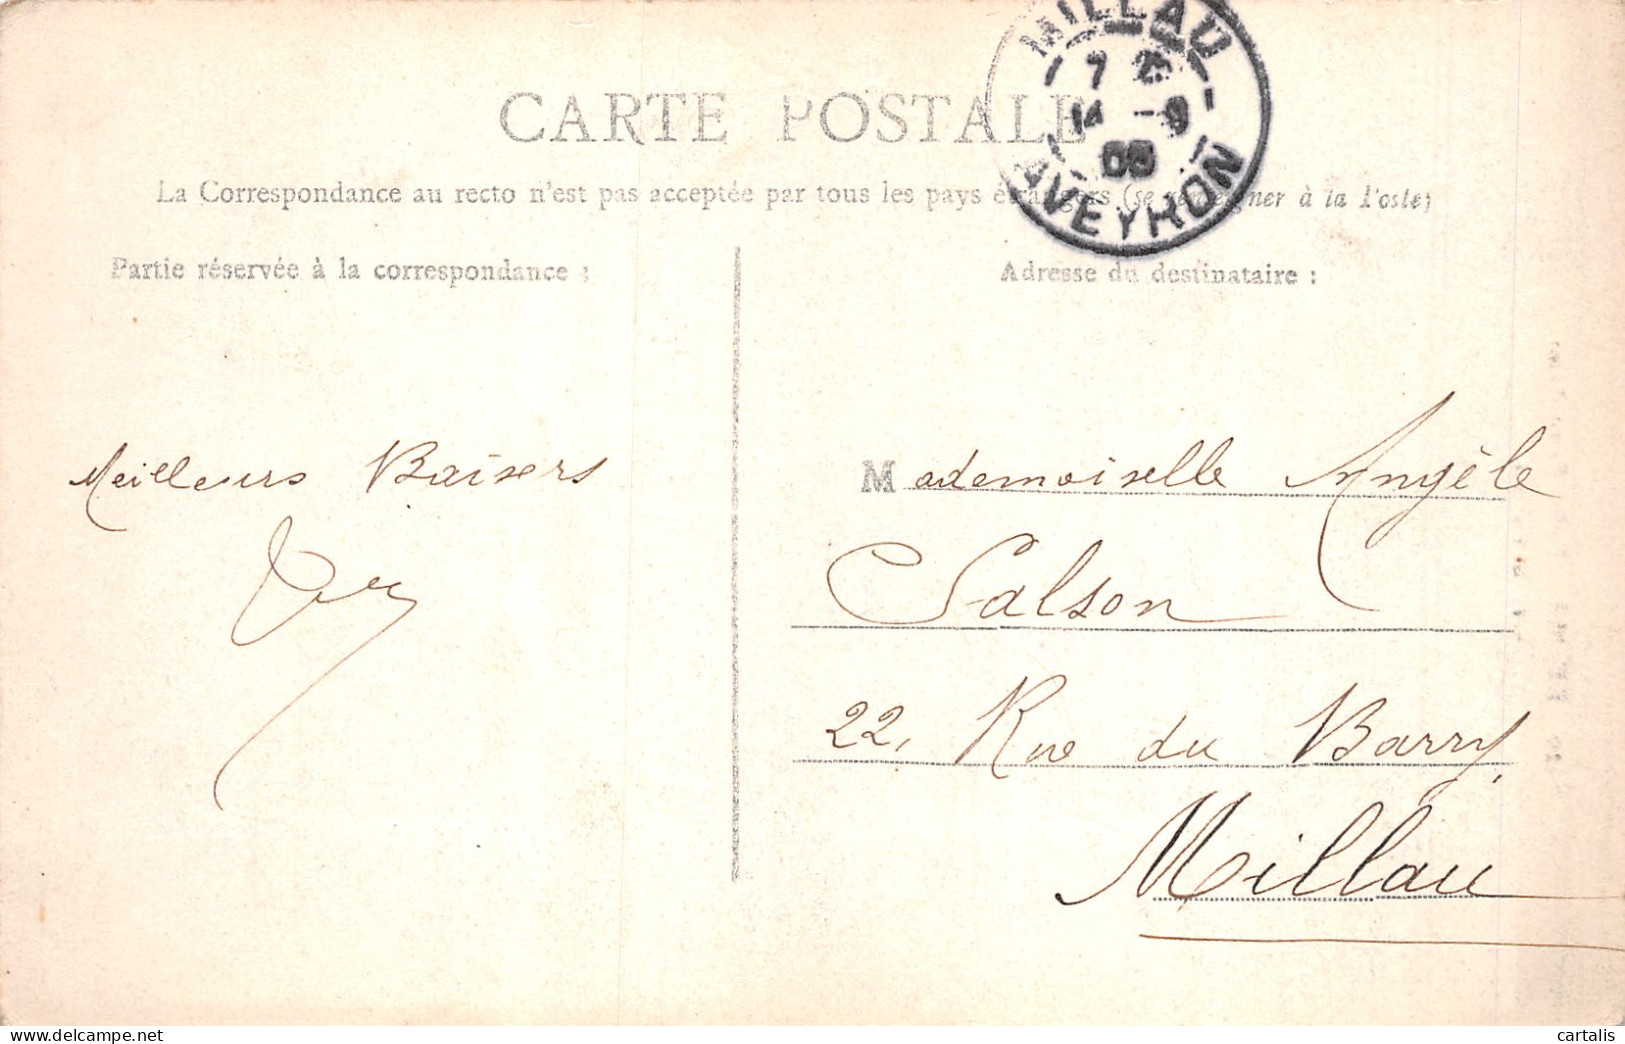 MILLAU
7
14 - 9
AVEYRON
CARTE POSTALE
La Correspondance au recto n'est pas acceptée par tous les pays étrangers (se renseigner à la Poste)
Partie réservée à la correspondance :
Adresse du destinataire :
Meilleurs Baisers
Mademoiselle Angèle
Salson
22, Rue du Barry,
Millau
cartalis